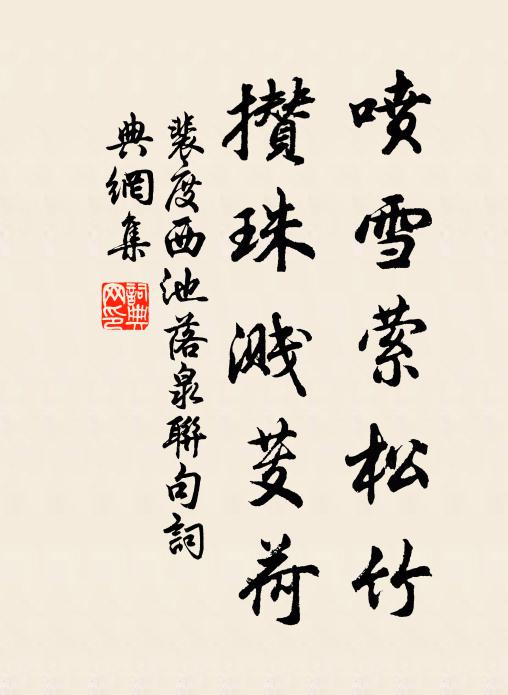 喷雪萦松竹
攒珠溅芰荷
裴度西池落泉聯句詞
典網集
詞典
网印